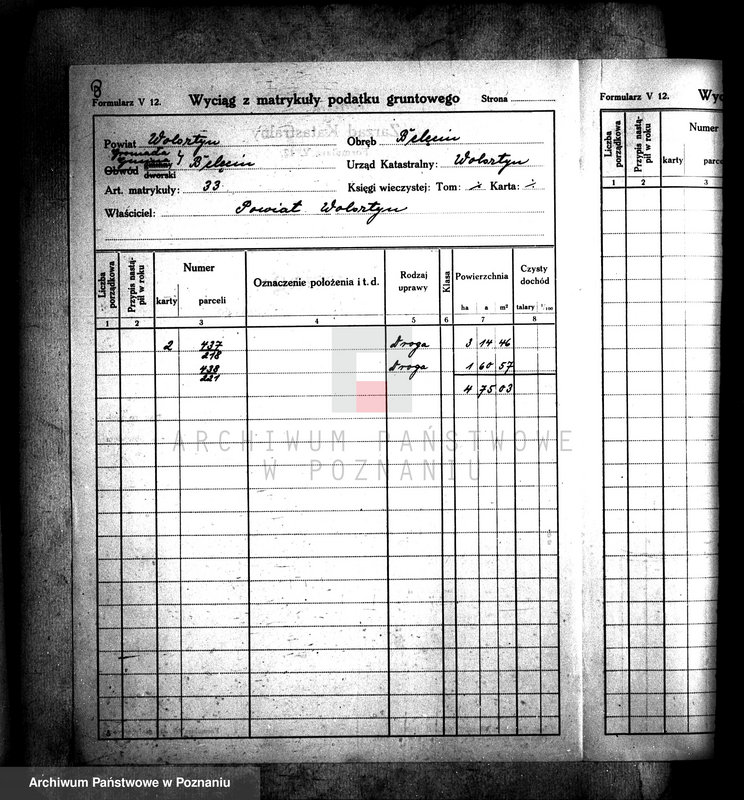 8
Formularz V 12. Wyciąg z matrykuły podatku gruntowego Strona
Powiat Wolsztyn Obręb Bełęcin
Gromada
Obwód dworski Bełęcin Urząd Katastralny: Wolsztyn
Art. matrykuły: 33 Księgi wieczystej: Tom: Karta:
Właściciel: Powiat Wolsztyn
Liczba porządkowa
Przypis nastąpił w roku
Numer
karty parceli
Oznaczenie położenia i t. d.
Rodzaj uprawy
Klasa
Powierzchnia
ha a m²
Czysty dochód
talary 1/100
1 2 3 4 5 6 7 8
2 437/218 Droga 3 14 46
438/221 Droga 1 60 57
4 75 03
Formularz V 12. Wyc
Liczba porządkowa
Przypis nastąpił w roku
Numer
karty parce
1 2 3
ARCHIWUM PAŃSTWOWE
W POZNANIU
Archiwum Państwowe w Poznaniu